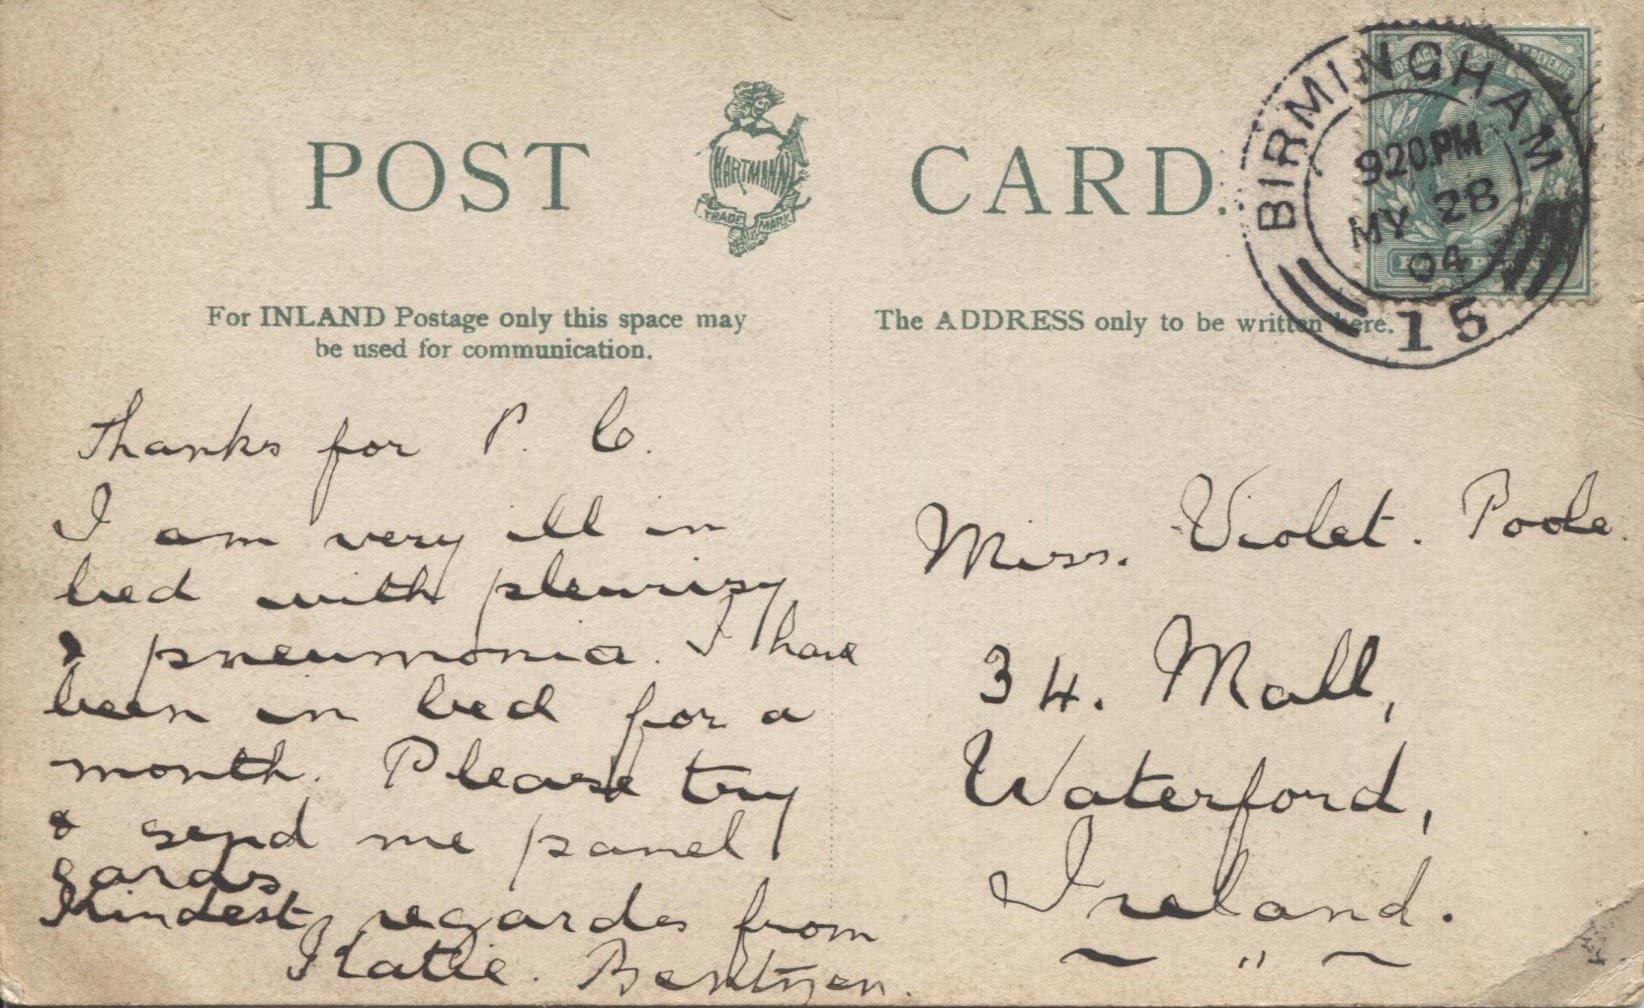 POST CARD.
HARTMANN
TRADE MARK
BIRMINGHAM
9 20.PM
MY 28
04
15
For INLAND Postage only this space may
be used for communication.
The ADDRESS only to be written here.
Thanks for P. C.
I am very ill in
bed with pleurisy
& pneumonia. I have
been in bed for a
month. Please try
& send me panel
cards
Kindest regards from
Katie.
Miss. Violet. Poole.
34. Mall,
Waterford,
Ireland.